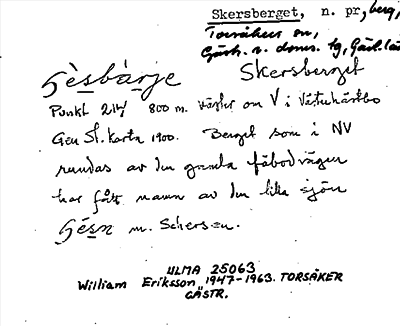 Skersberget, n. pr, berg,
Torsåkers sn,
Gästr. n. doms. tg, Gävl. län
Gèsbàrje Skersberget
Punkt 214 800 m. väster om V i Västerhästbo
Gen St. karta 1900. Berget som i NV
rundas av den gamla fäbodvägen
har fått namn av den lilla sjön
Gésn m. Schersen.
ULMA 25063
William Eriksson 1947-1963. TORSÅKER
GÄSTR.